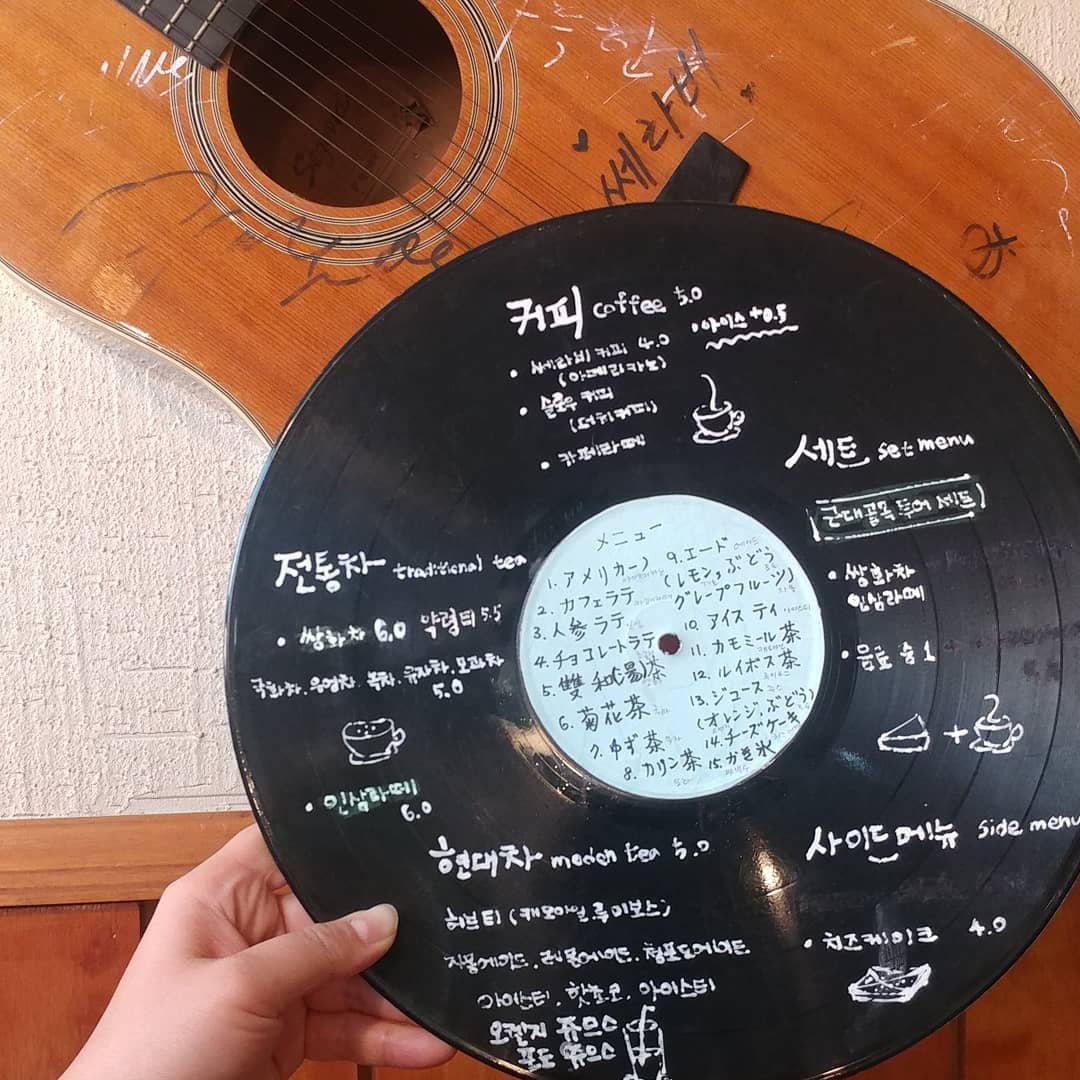 쎄라비
커피 coffee 5.0
• 아이스 +0.5
• 쎄라비 커피 4.0
(아메리카노)
• 슬로우 커피
(더치커피)
• 카페라떼
세트 set menu
근대골목 투어 세트
• 쌍화차
인삼라떼
• 음료 중 1
+
전통차 traditional tea
• 쌍화차 6.0 약령티 5.5
국화차, 우엉차, 목차, 유자차, 모과차
5.0
• 인삼라떼
6.0
メニュー
1. アメリカーノ
2. カフェラテ
3. 人参ラテ
4. チョコレートラテ
5. 雙和(湯)茶
6. 菊花茶
7. ゆず茶
8. カリン茶
9. エード
(レモン, ぶどう
グレープフルーツ)
10. アイス ティ
11. カモミール 茶
12. ルイボス 茶
13. ジュース
(オレンジ, ぶどう)
14. チーズケーキ
15. かき氷
현대차 moden tea 5.0
허브티 (캐모마일, 루이보스)
자몽에이드, 레몬에이드, 청포도에이드
아이스티, 핫초코, 아이스티
오렌지 쥬스
포도 쥬스
사이드 메뉴 side menu
• 치즈케이크 4.0